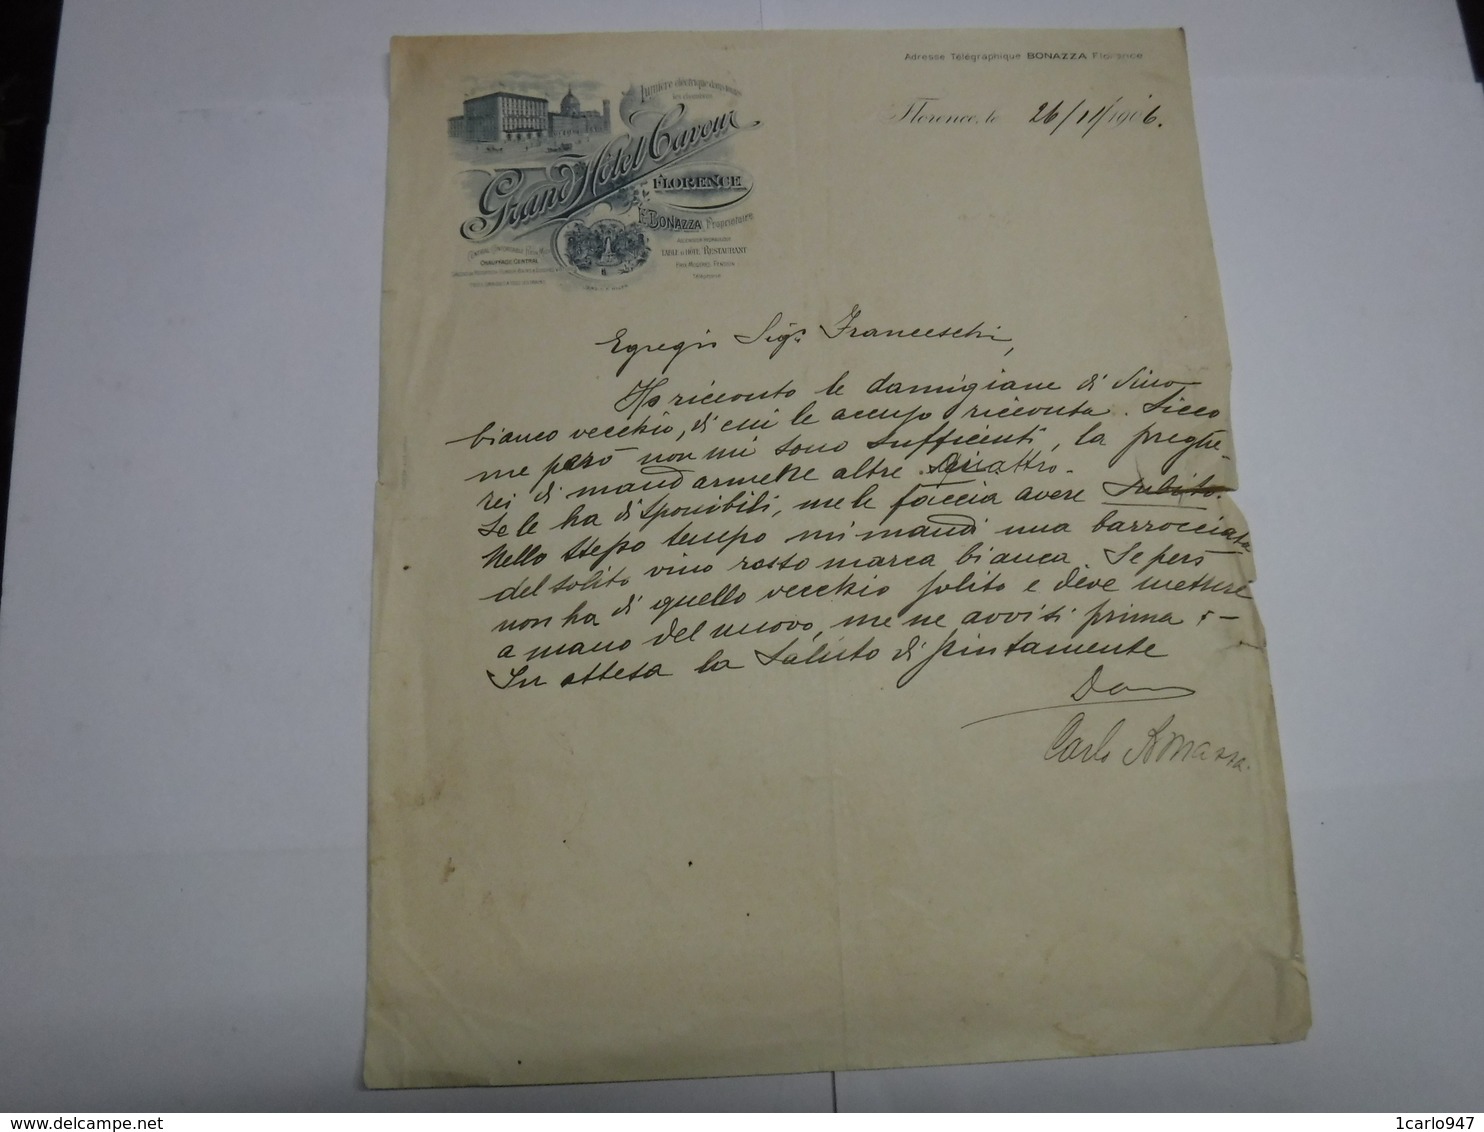 Adresse Télégraphique BONAZZA Florence
Lumière électrique dans toutes
les chambres
Grand Hôtel Cavour
FLORENCE
F. BONAZZA Propriétaire
CHAUFFAGE CENTRAL
TABLE D'HÔTE RESTAURANT
PRIX MODÉRÉS PENSION
Florence, le 26/11/1906.
Egregio Sigr Franceschi,
Ho ricevuto le damigiane di vino
bianco vecchio, di cui le accuso ricevuta. Sicco
me però non mi sono sufficienti, la preghe-
rei di mandarmene altre quattro.
Se le ha disponibili, me le faccia avere subito.
Nello stesso tempo mi mandi una barrocciata
del solito vino rosso marca bianca. Se però
non ha di quello vecchio solito e deve mettere
a mano del nuovo, me ne avvisi prima.
In attesa la saluto distintamente
Carlo Bonazza.
1carlo947
delcampe.net